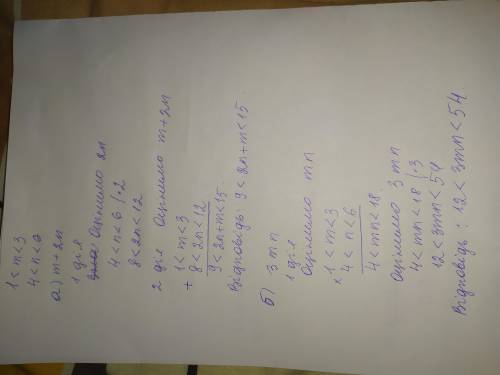 1 < m < 3
4 < n < 6
а) m + 2n
1 дія
Оцінимо 2n
4 < n < 6 | · 2
8 < 2n < 12
2 дія Оцінимо m + 2n
+ 1 < m < 3
8 < 2n < 12
9 < 2n + m < 15
Відповідь: 9 < 2n + m < 15.
б) 3mn
1 дія
Оцінимо mn
× 1 < m < 3
4 < n < 6
4 < mn < 18
Оцінимо 3mn
4 < mn < 18 | · 3
12 < 3mn < 54
Відповідь: 12 < 3mn < 54